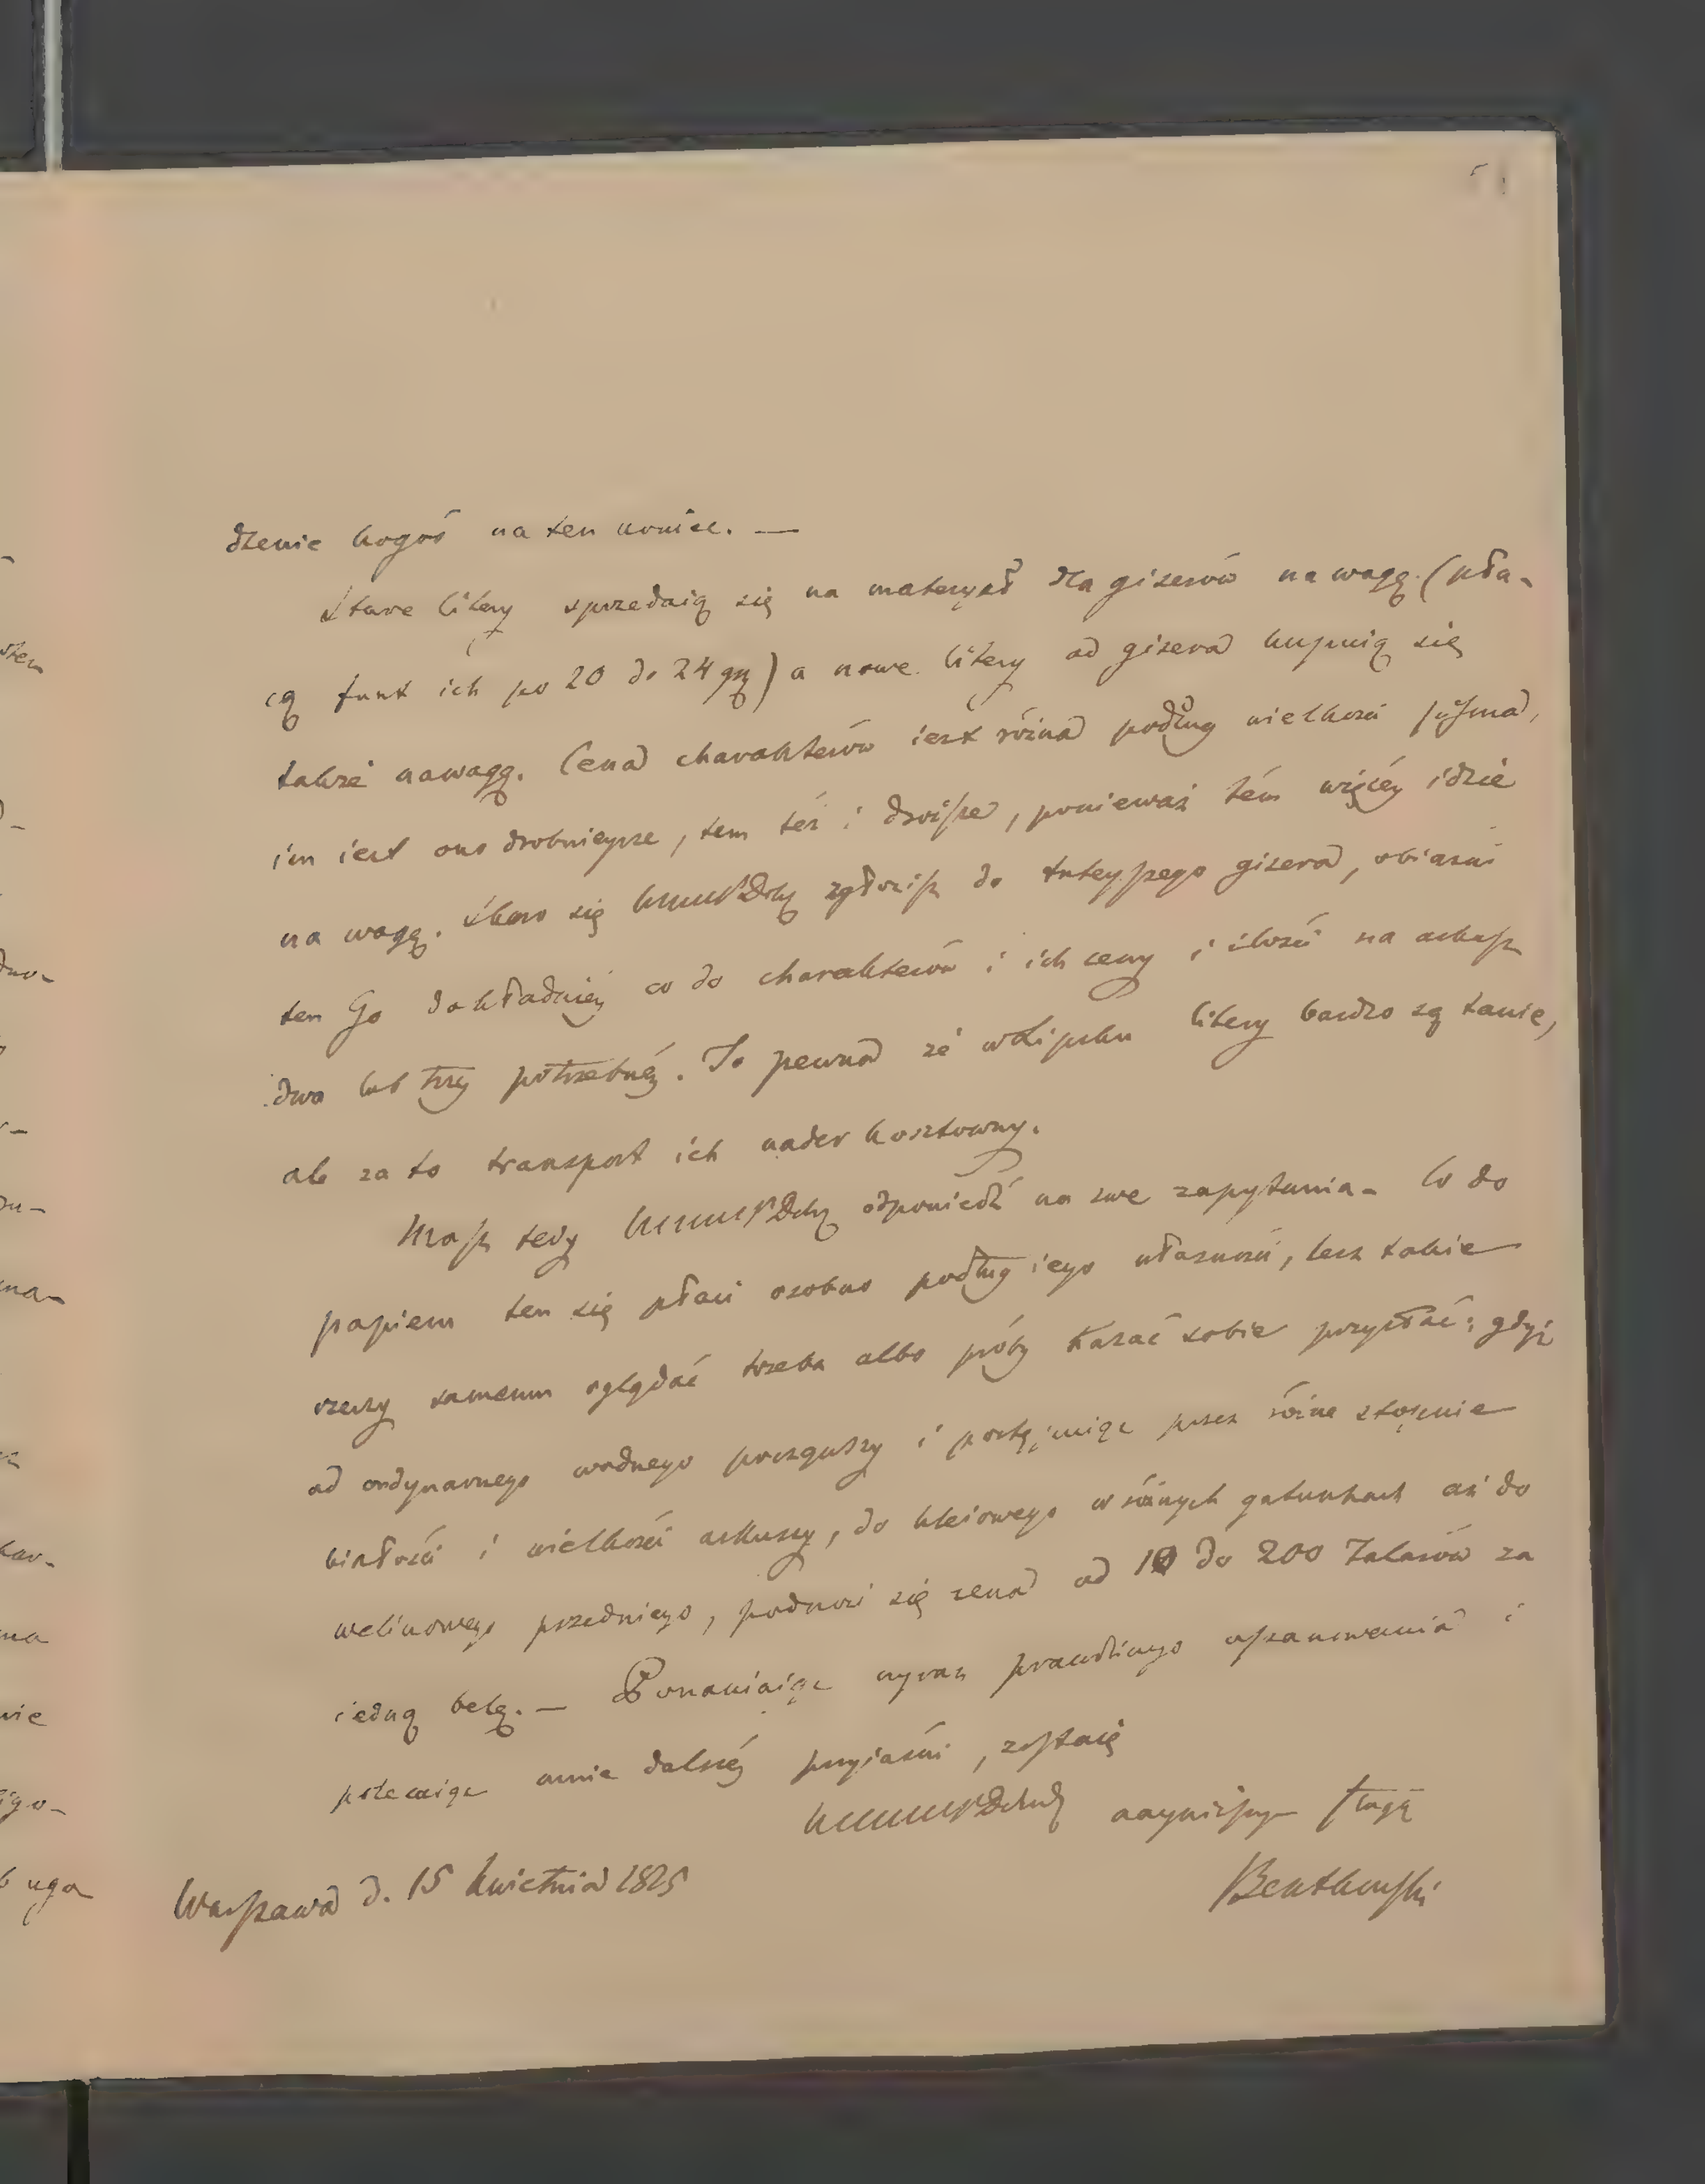 dzenie kogoś na ten koniec. —
Stare litery sprzedaią się na materyał dla giserów na wagę. (pła-
cą funt ich po 20 do 24 gr) a nowe litery od gisera kupuią się
także na wagę. Cena charakterów iest różna podług wielkości pisma,
im iest ono drobnieysze, tem też i droższe, ponieważ tém więcéy idzie
na wagę. Skoro się zgłosisz do tuteyszego gisera, obiaśni
ten Go dokładniéy co do charakterów i ich ceny i ilości na arkusz
dwa lub trzy potrzebnéy. To pewna że w Lipsku litery bardzo są tanie,
ale za to transport ich nader kosztowny.
Masz tedy odpowiedź na swe zapytania. Co do
papieru ten się płaci osobno podług iego własności, lecz takie
rzeczy samemu oglądać trzeba albo próby kazać sobie przysłać; gdyż
od ordynarnego wodnego począwszy i postępuiąc przez różne stopnie
białości i wielkości arkuszy, do kleiowego w różnych gatunkach aż do
welinowego przedniego, podnosi się cena od 10 do 200 Talarów za
iedną belę. — Ponawiaiąc wyraz prawdziwego uszanowania i
polecaiąc mnie dalszéy przyiaźni, zostaię
nayniższym sługą
Warszawa d. 15 kwietnia 1825
Bentkowski